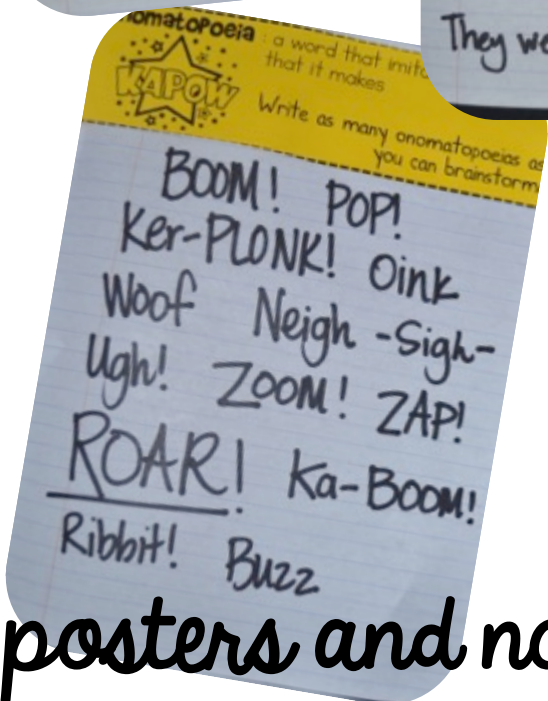 They we
onomatopoeia : a word that imita
that it makes
KAPOW
Write as many onomatopoeias as
you can brainstorm
BOOM! POP!
Ker-PLONK! Oink
Woof Neigh -Sigh-
Ugh! ZOOM! ZAP!
ROAR! Ka-BOOM!
Ribbit! Buzz
posters and no